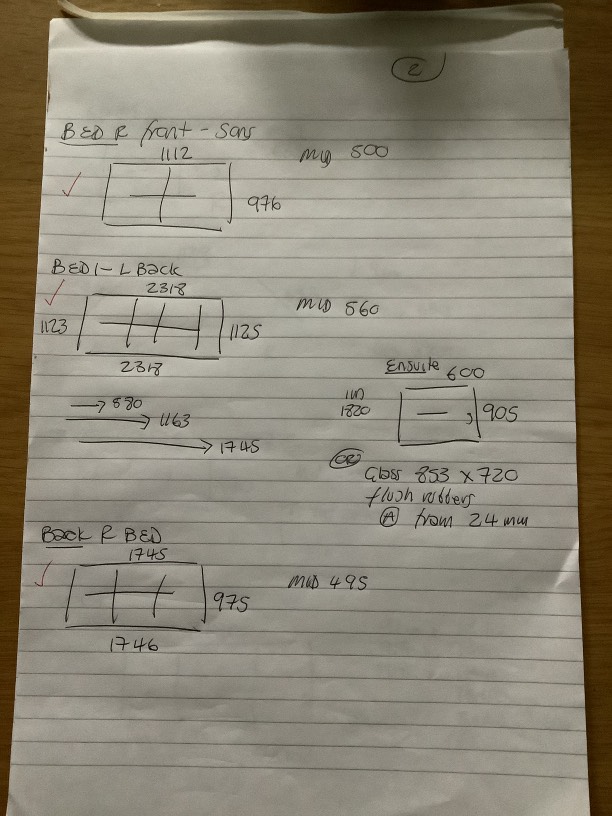 2
BED R front - Sons
1112
MID 500
976
BED 1 - L Back
2318
MID 560
1123
1125
2318
Ensuite
600
1820
905
→ 580
→ 1163
→ 1745
OR
Glass 853 x 720
flush rubbers
A from 24mm
Back R BED
1745
MID 495
975
1746